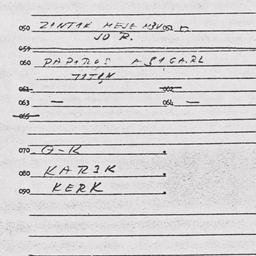 050 ZANTAK MEJE
JO R.
059
060 PAPIROS A SIGARL
061 062
063 — 064 —
065
070 G-K
080 KARIK
090 KERK